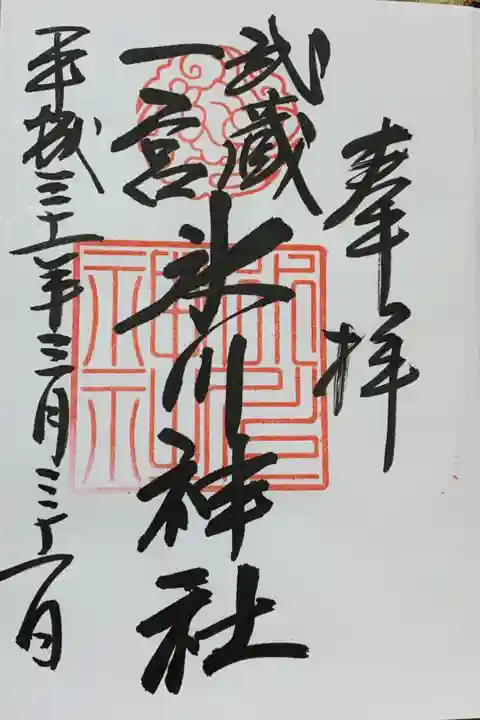 奉拝
武蔵
一宮
氷川神社
平成三十一年三月三十一日
氷川神社